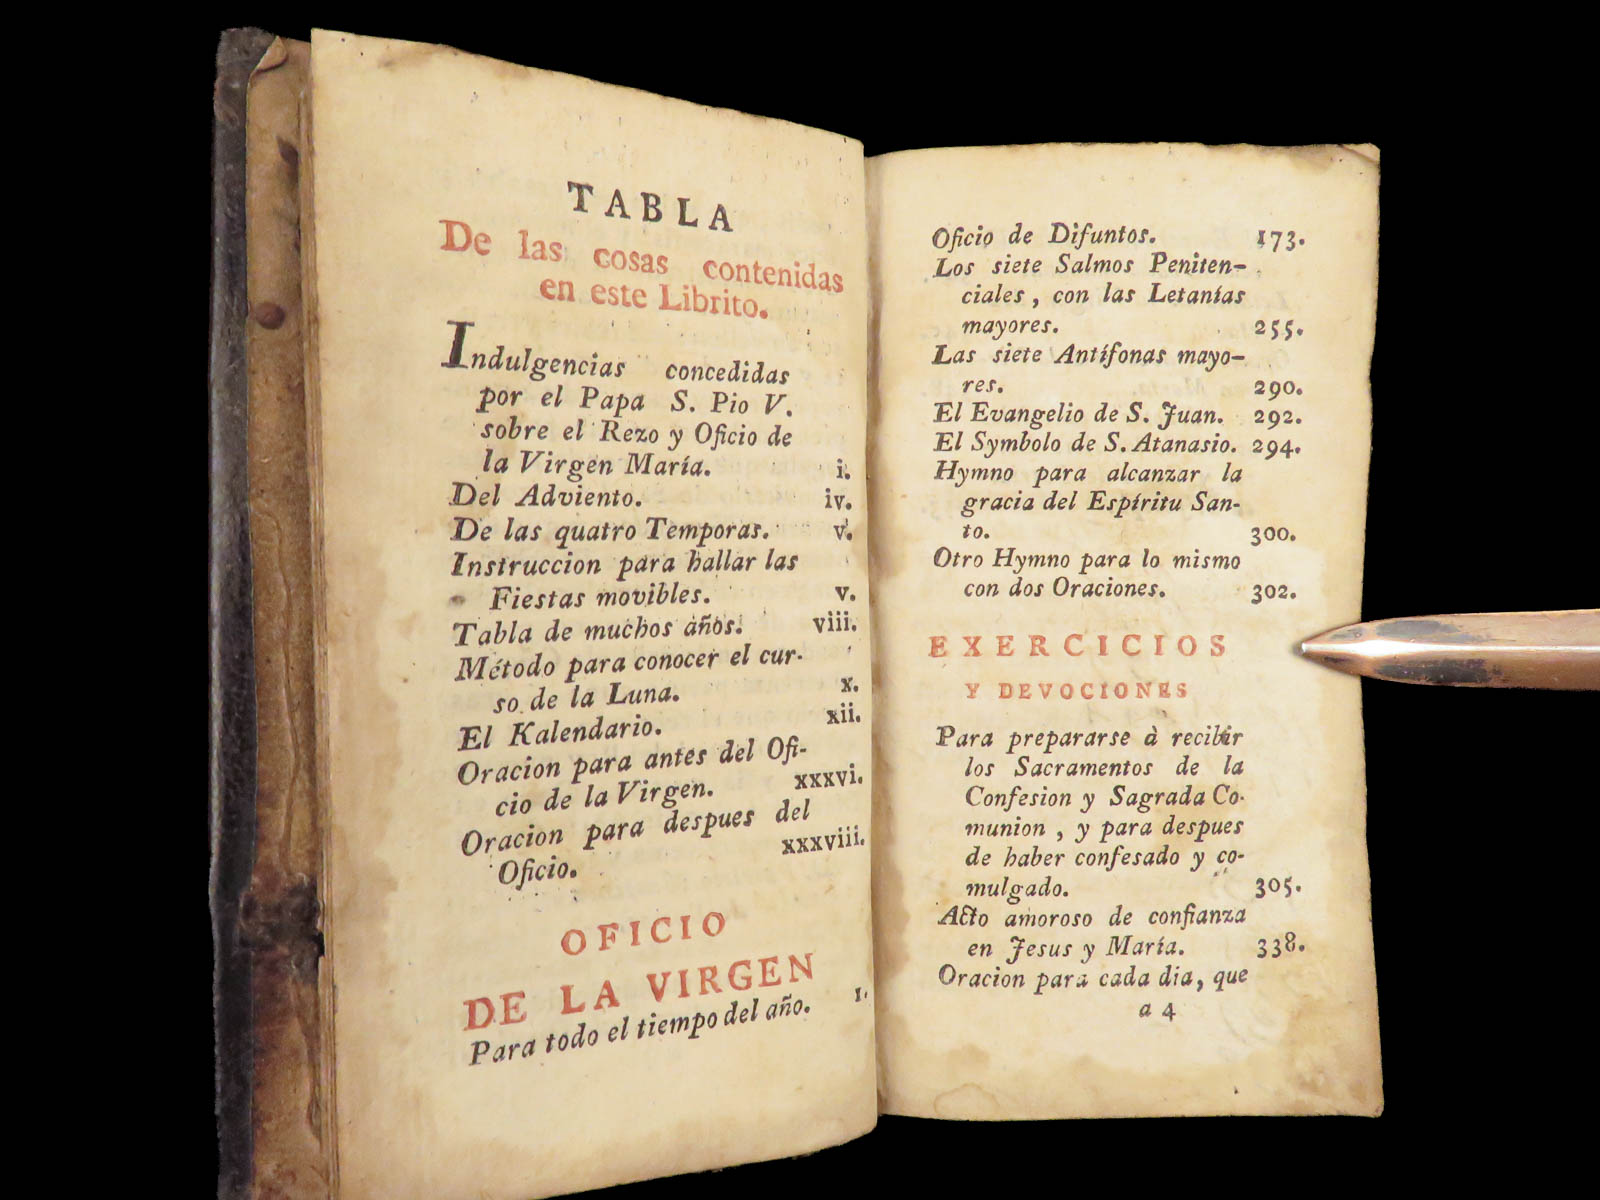 TABLA
De las cosas contenidas
en este Librito.
Indulgencias concedidas
por el Papa S. Pio V.
sobre el Rezo y Oficio de
la Virgen María. i.
Del Adviento. iv.
De las quatro Temporas. v.
Instruccion para hallar las
Fiestas movibles. v.
Tabla de muchos años. viii.
Método para conocer el cur-
so de la Luna. x.
El Kalendario. xii.
Oracion para antes del Ofi-
cio de la Virgen. xxxvi.
Oracion para despues del
Oficio. xxxviii.
OFICIO
DE LA VIRGEN
Para todo el tiempo del año. 1.
Oficio de Difuntos. 173.
Los siete Salmos Peniten-
ciales, con las Letanías
mayores. 255.
Las siete Antífonas mayo-
res. 290.
El Evangelio de S. Juan. 292.
El Symbolo de S. Atanasio. 294.
Hymno para alcanzar la
gracia del Espíritu San-
to. 300.
Otro Hymno para lo mismo
con dos Oraciones. 302.
EXERCICIOS
Y DEVOCIONES
Para prepararse à recibir
los Sacramentos de la
Confesion y Sagrada Co-
munion, y para despues
de haber confesado y co-
mulgado. 305.
Acto amoroso de confianza
en Jesus y María. 338.
Oracion para cada dia, que
a 4